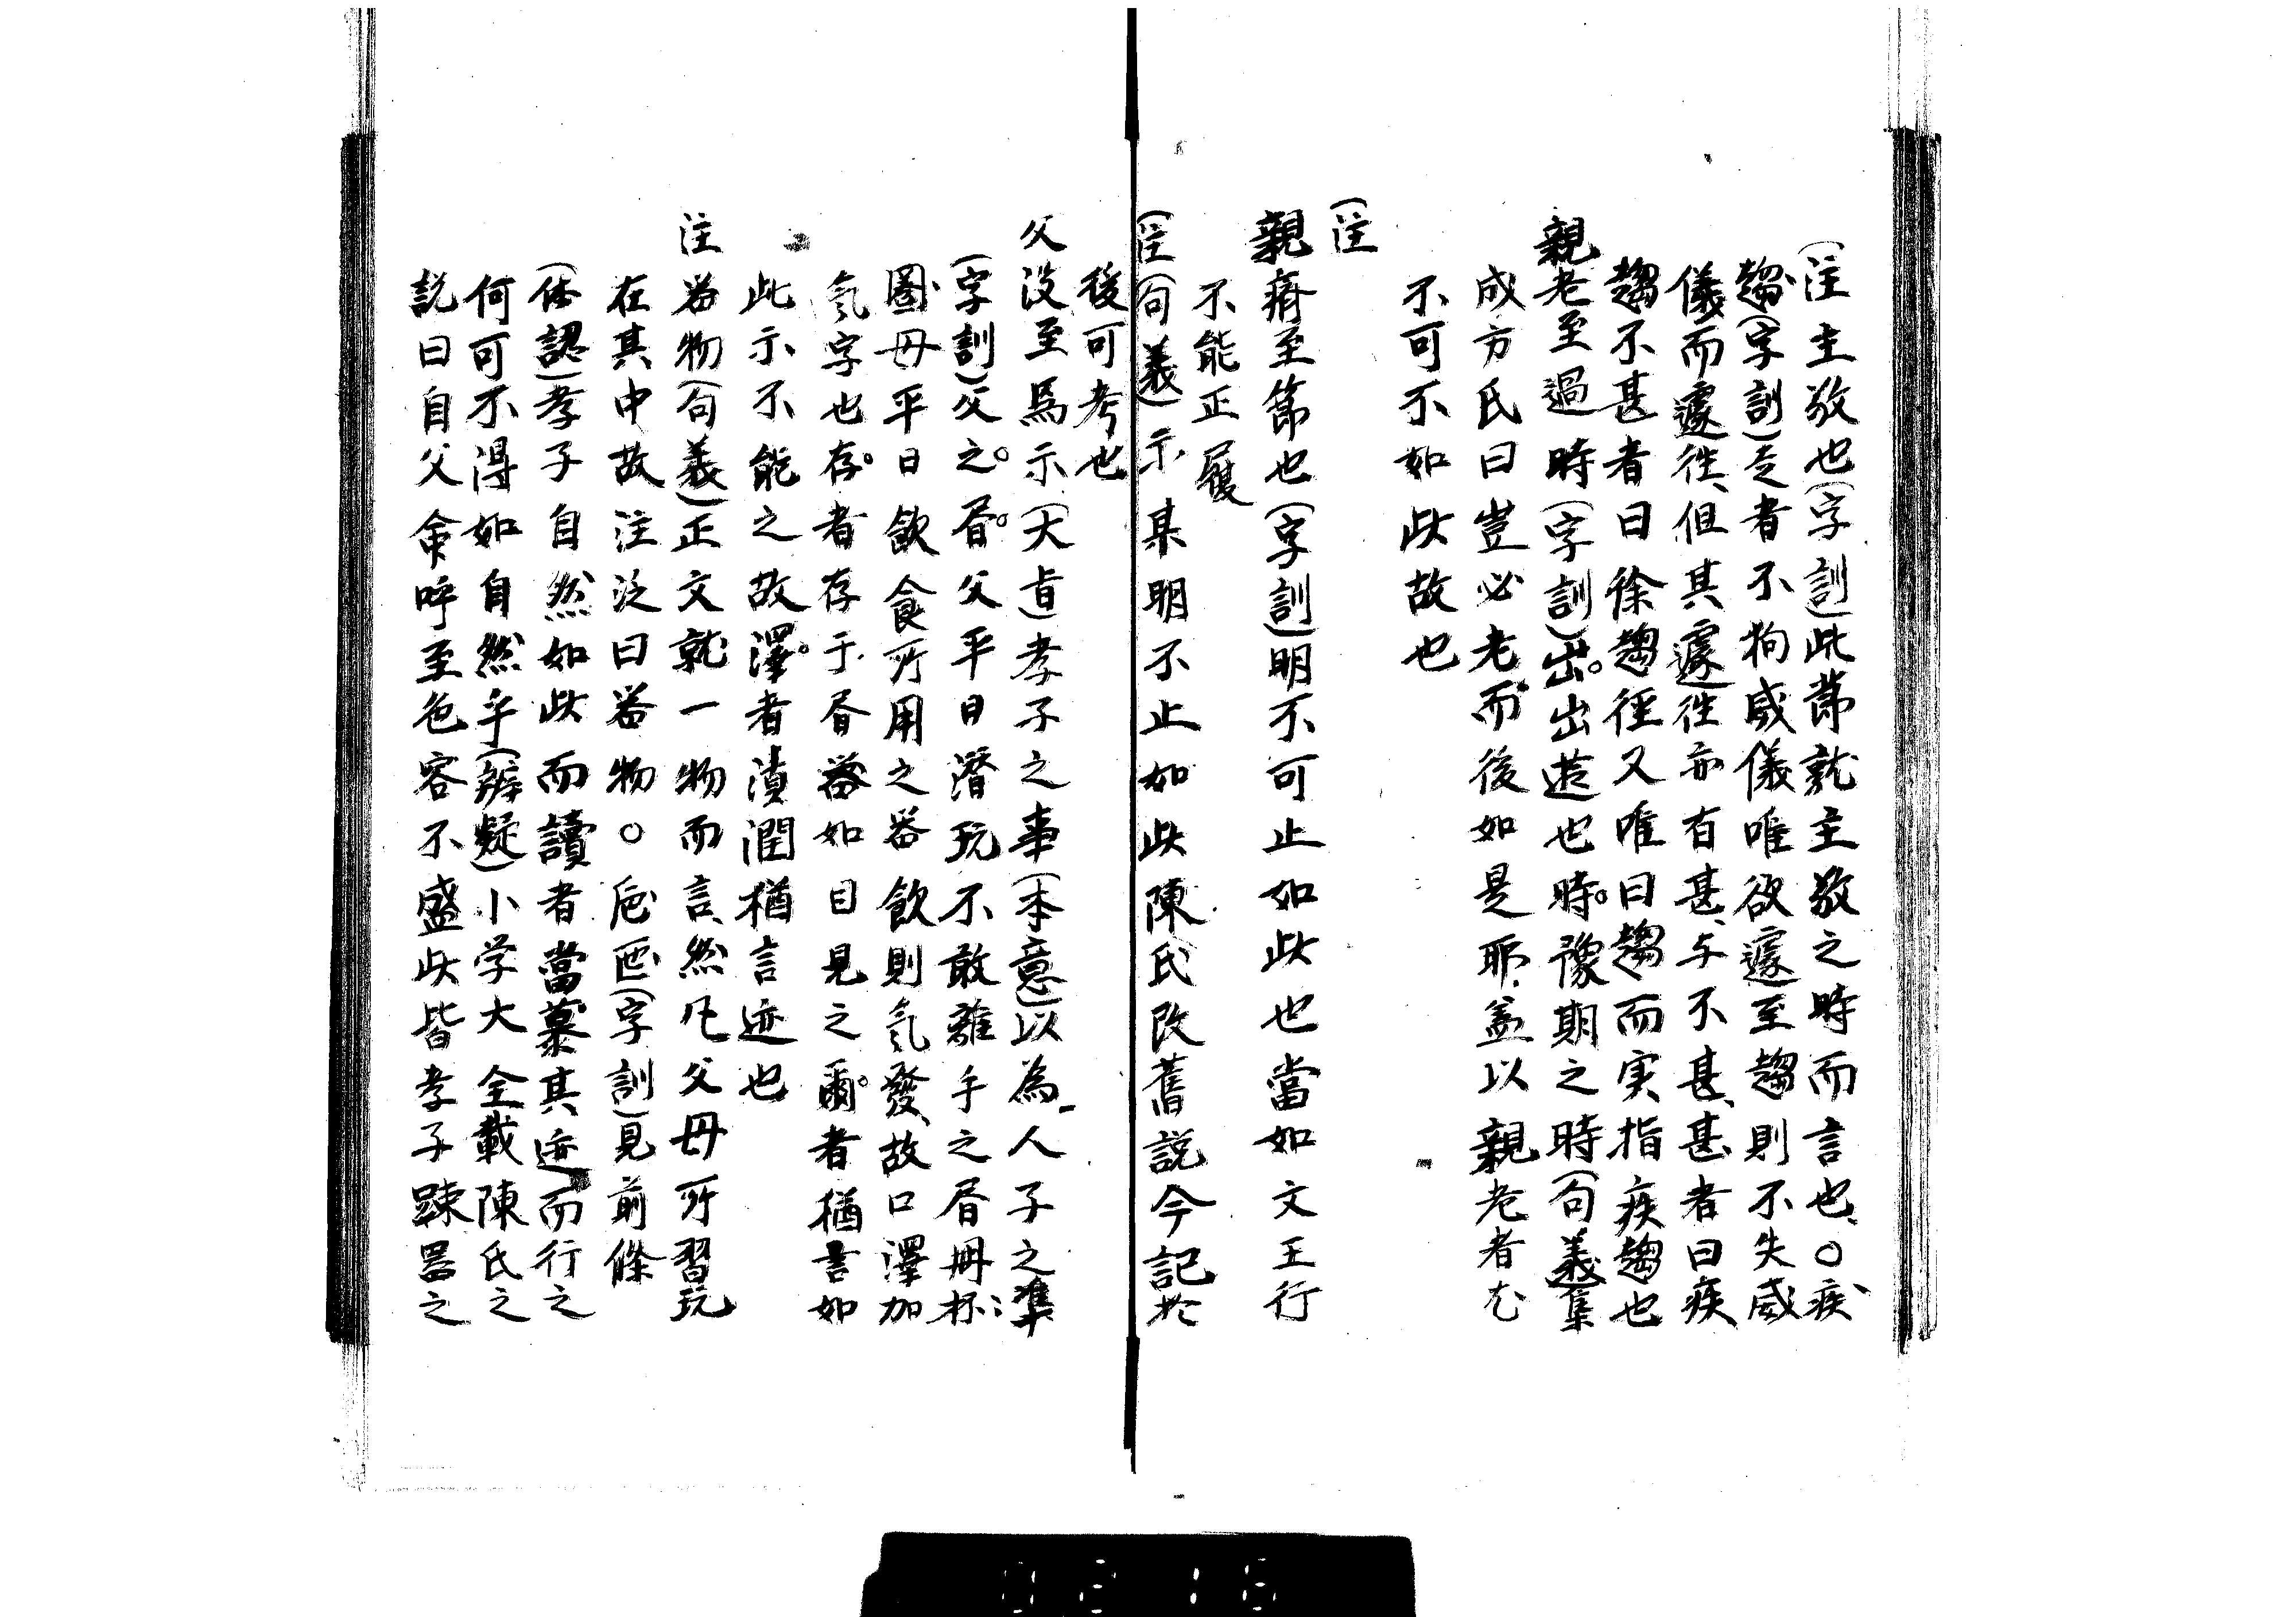 (注主敬也(字訓)此節就主敬之時而言也、○疾
趨(字訓)走者不拘威儀唯欲遽至趨則不失威
儀而遽徃、但其遽徃亦有甚、与不甚、甚者曰疾
趨不甚者曰徐趨徑又唯曰趨而実指疾趨也
親老至過時(字訓)出。出遊也時。豫期之時(句義)集
成方氏曰豈必老而後如是耶、盖以親老者尤
不可不如此故也
(注
親瘠至節也(字訓)明不可止如此也當如文王行
不能正履
(注(句義)示某明不止如此陳氏改舊説今記於
後可考也
父没至焉示(大㫖孝子之事(本意)以為人子之準
(字訓)父之。㞒。父平日潜玩不敢離手之㞒冊杯
圏母平日飲食所用之器飲則气發、故口澤加
气字也存。者存于㞒器如目見之爾。者猶言如
此示不能之故澤。者漬潤猶言迹也
注器物(句義)正文就一物而言、然凡父母所習玩
在其中故注泛曰器物○巵匜(字訓)見前條
(体認)孝子自然如此而讀者當慕其迹而行之
何可不得如自然乎(辨疑)小学大全載陳氏之
説曰自父命呼至色容不盛此皆孝子踈畧之